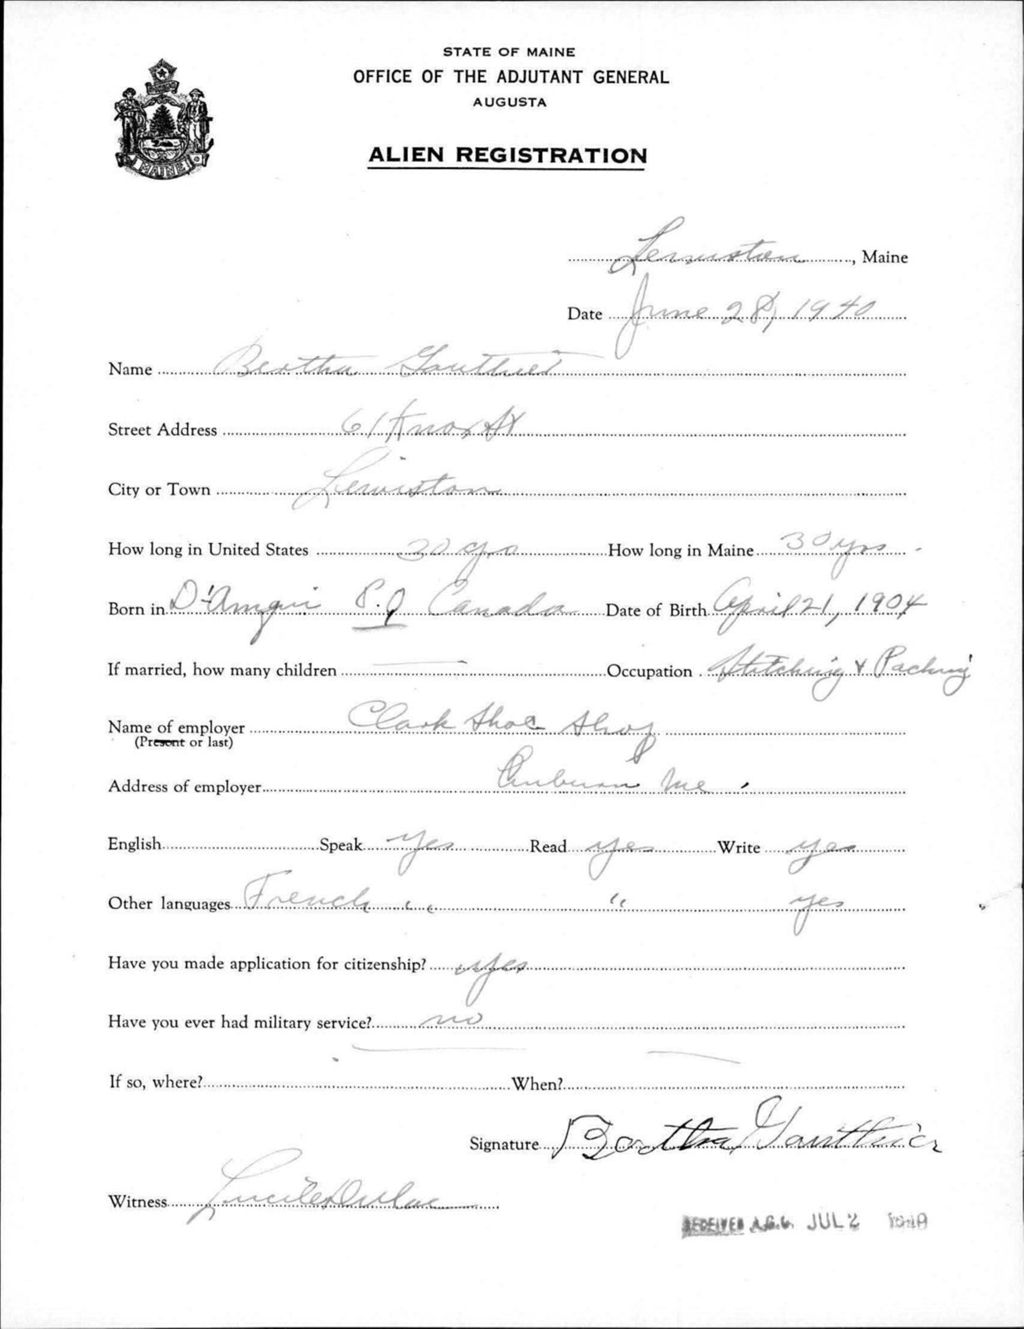 STATE OF MAINE
OFFICE OF THE ADJUTANT GENERAL
AUGUSTA
MAINE
ALIEN REGISTRATION
Lewiston, Maine
Date June 28, 1940
Name Bertha Gauthier
Street Address 61 Knox St
City or Town Lewiston
How long in United States 30 yrs How long in Maine 30 yrs
Born in D'Amqui P.Q Canada Date of Birth April 21, 1904
If married, how many children — Occupation Stitching & Packing
Name of employer Clark Shoe Shop
(Present or last)
Address of employer Auburn Me.
English Speak yes Read yes Write yes
Other languages French " " yes
Have you made application for citizenship? yes
Have you ever had military service? no
If so, where? — When? —
Signature Bertha Gauthier
Witness Lucile Dulac
RECEIVED A.G.O. JUL 2 1940